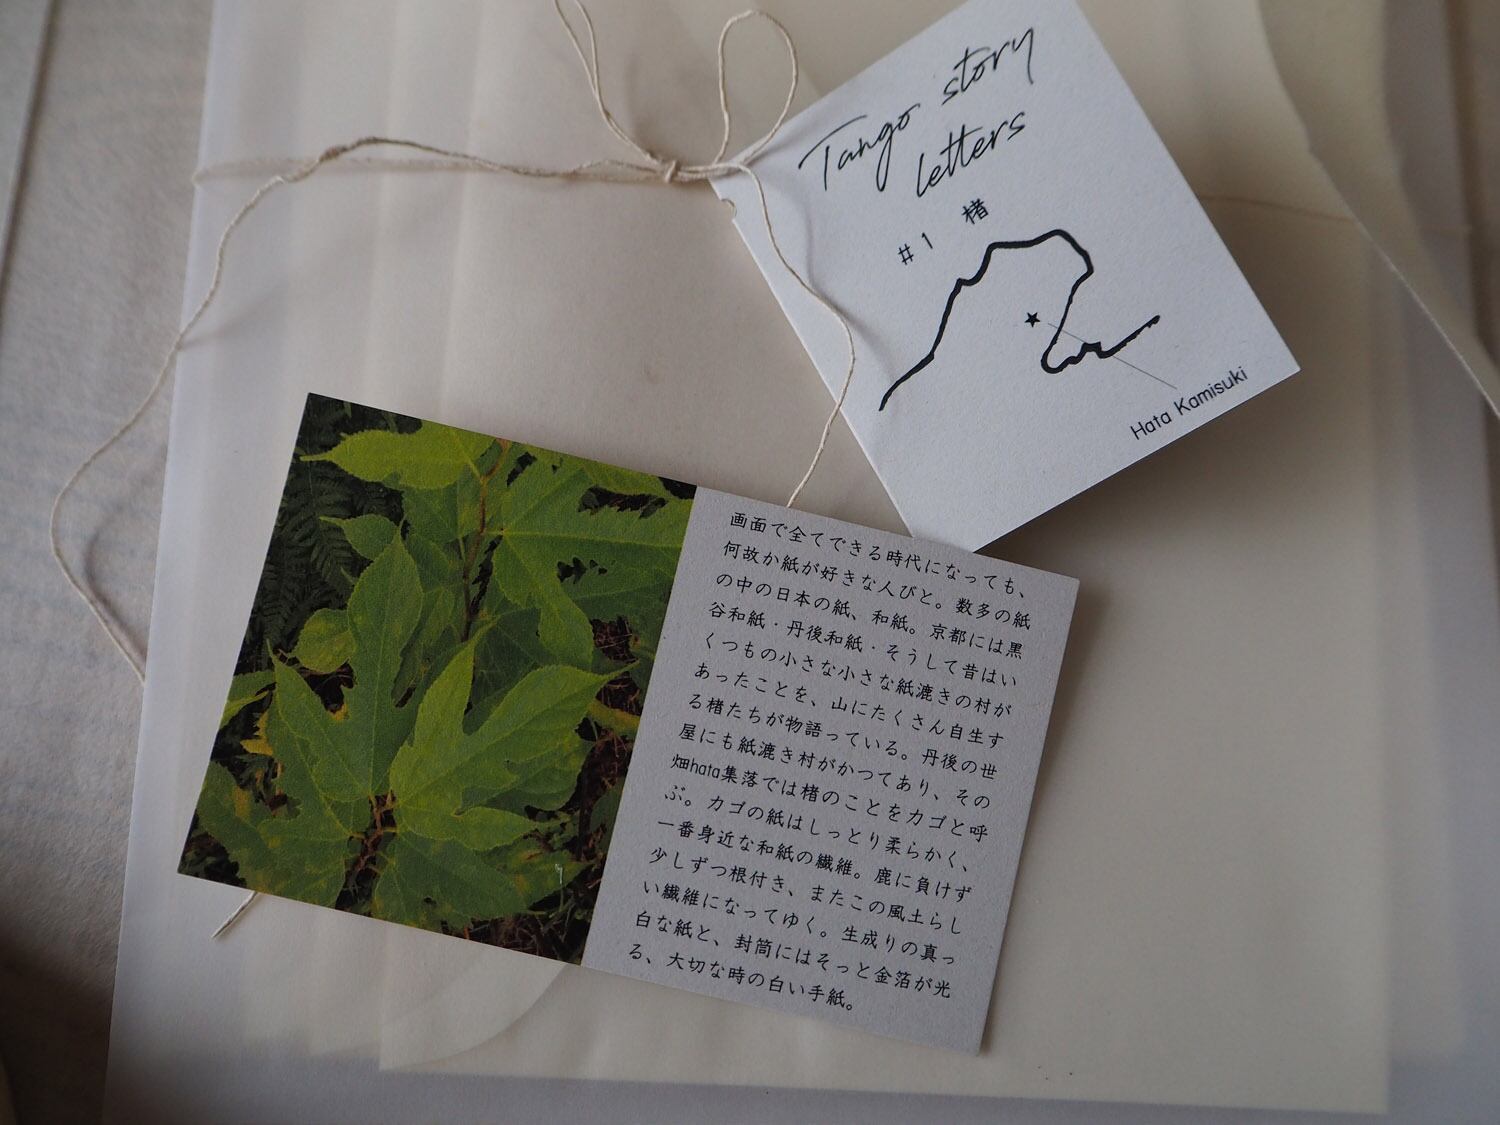 Tango story
letters
#1 楮
Hata Kamisuki
画面で全てできる時代になっても、
何故か紙が好きな人びと。数多の紙
の中の日本の紙、和紙。京都には黒
谷和紙・丹後和紙・そうして昔はい
くつもの小さな小さな紙漉きの村が
あったことを、山にたくさん自生す
る楮たちが物語っている。丹後の世
屋にも紙漉き村がかつてあり、その
畑hata集落では楮のことをカゴと呼
ぶ。カゴの紙はしっとり柔らかく、
一番身近な和紙の繊維。鹿に負けず
少しずつ根付き、またこの風土らし
い繊維になってゆく。生成りの真っ
白な紙と、封筒にはそっと金箔が光
る、大切な時の白い手紙。